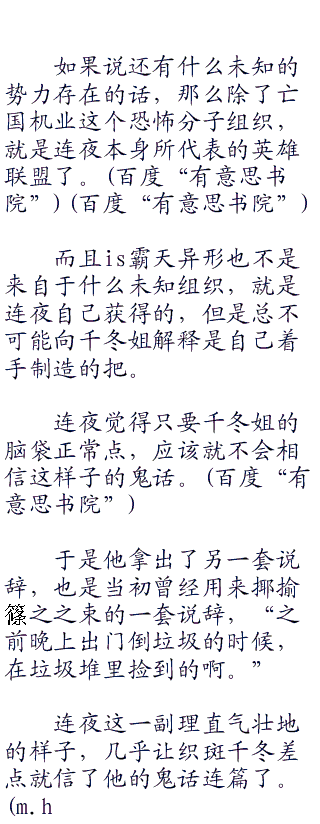 如果说还有什么未知的
势力存在的话，那么除了亡
国机业这个恐怖分子组织，
就是连夜本身所代表的英雄
联盟了。(百度“有意思书
院”)(百度“有意思书院”)
而且is霸天异形也不是
来自于什么未知组织，就是
连夜自己获得的，但是总不
可能向千冬姐解释是自己着
手制造的把。
连夜觉得只要千冬姐的
脑袋正常点，应该就不会相
信这样子的鬼话。(百度“有
意思书院”)
于是他拿出了另一套说
辞，也是当初曾经用来揶揄
篠之之束的一套说辞，“之
前晚上出门倒垃圾的时候，
在垃圾堆里捡到的啊。”
连夜这一副理直气壮地
的样子，几乎让织斑千冬差
点就信了他的鬼话连篇了。
(m.h